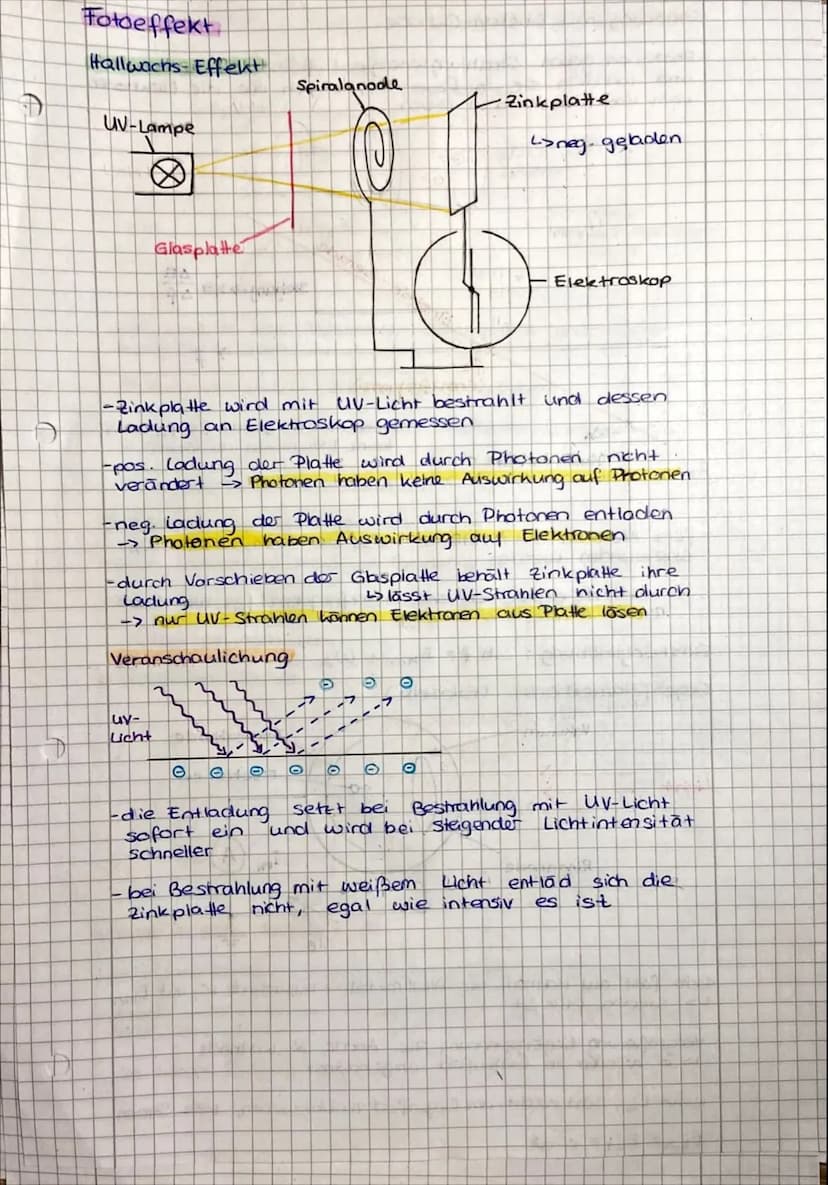 Fotoeffekt
Hallwachs-Effekt
Spiralanode
Zinkplatte
UV-Lampe
↳ neg. geladen
Glasplatte
Elektroskop
- Zinkplatte wird mit UV-Licht bestrahlt und dessen
Ladung an Elektroskop gemessen
- pos. Ladung der Platte wird durch Photonen nicht
verändert → Photonen haben keine Auswirkung auf Protonen
- neg. Ladung der Platte wird durch Photonen entladen
→ Photonen haben Auswirkung auf Elektronen
- durch Vorschieben der Glasplatte behält Zinkplatte ihre
Ladung ↳ lässt UV-Strahlen nicht durch
→ nur UV-Strahlen können Elektronen aus Platte lösen
Veranschaulichung
UV-
Licht
- die Entladung setzt bei Bestrahlung mit UV-Licht
sofort ein und wird bei steigender Lichtintensität
schneller
- bei Bestrahlung mit weißem Licht entläd sich die
Zinkplatte nicht, egal wie intensiv es ist